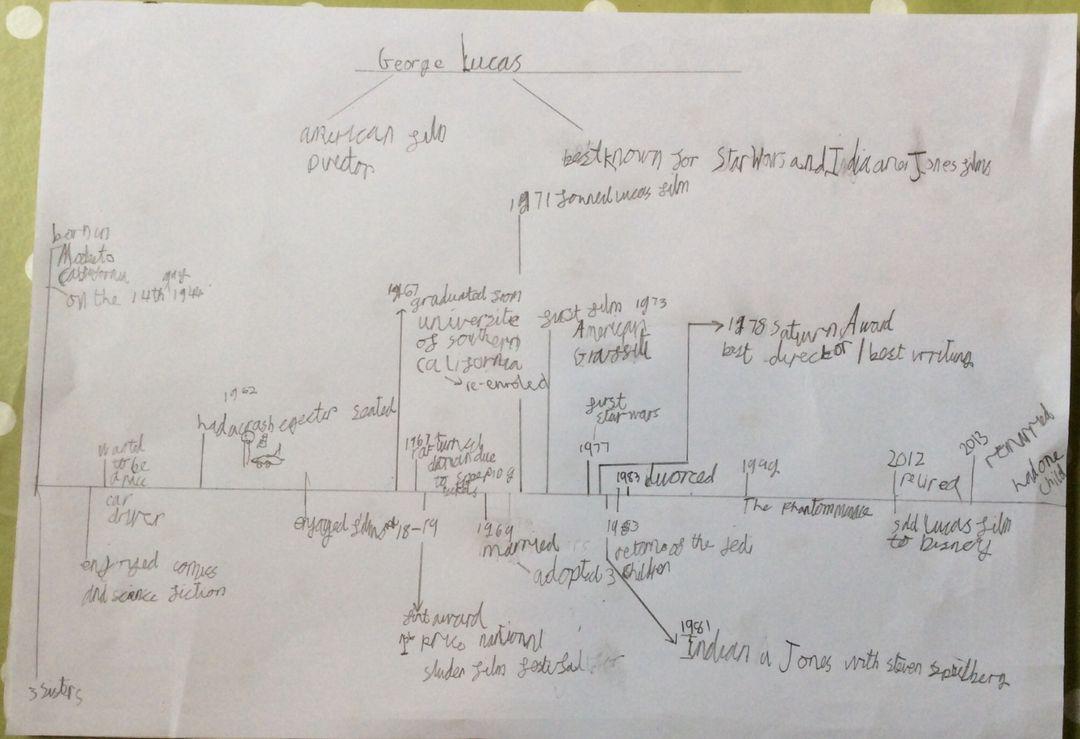 George Lucas
american film
Director
best known for Star Wars and Indiana Jones films
1971 formed Lucas film
born in
California
on the 14th may 1944
1967
graduated from
universite
of southern
California
re-enroled
first film 1973
American
1978 Saturn Award
best director / best writing
1962
had a crash ejector seated
wanted
to be
a race
car
driver
enjoyed comics
and science fiction
3 sisters
1967
down due
to
18-19
first award
1st national
film
1969
married
adopted 3 children
first
star wars
1977
1983 divorced
1983
return of the Jedi
1981
Indiana Jones with steven
The phantom menace
2012
retired
sold Lucas film
to Disney
2013
had one
child